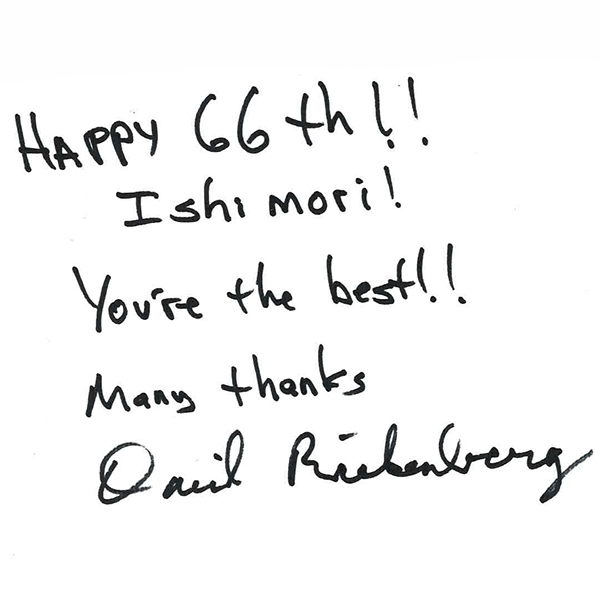 HAPPY 66th!!
Ishimori!
You're the best!!
Many thanks